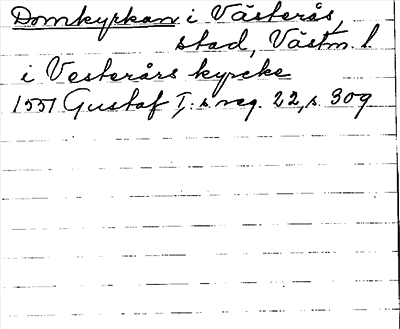 Domkyrkan i Västerås,
stad, Västm. l.
i Vesterårs kyrcke
1551 Gustaf I:s reg. 22, s. 309